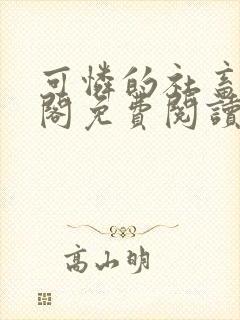 可憐的社畜
閣免費閱讀
高山明